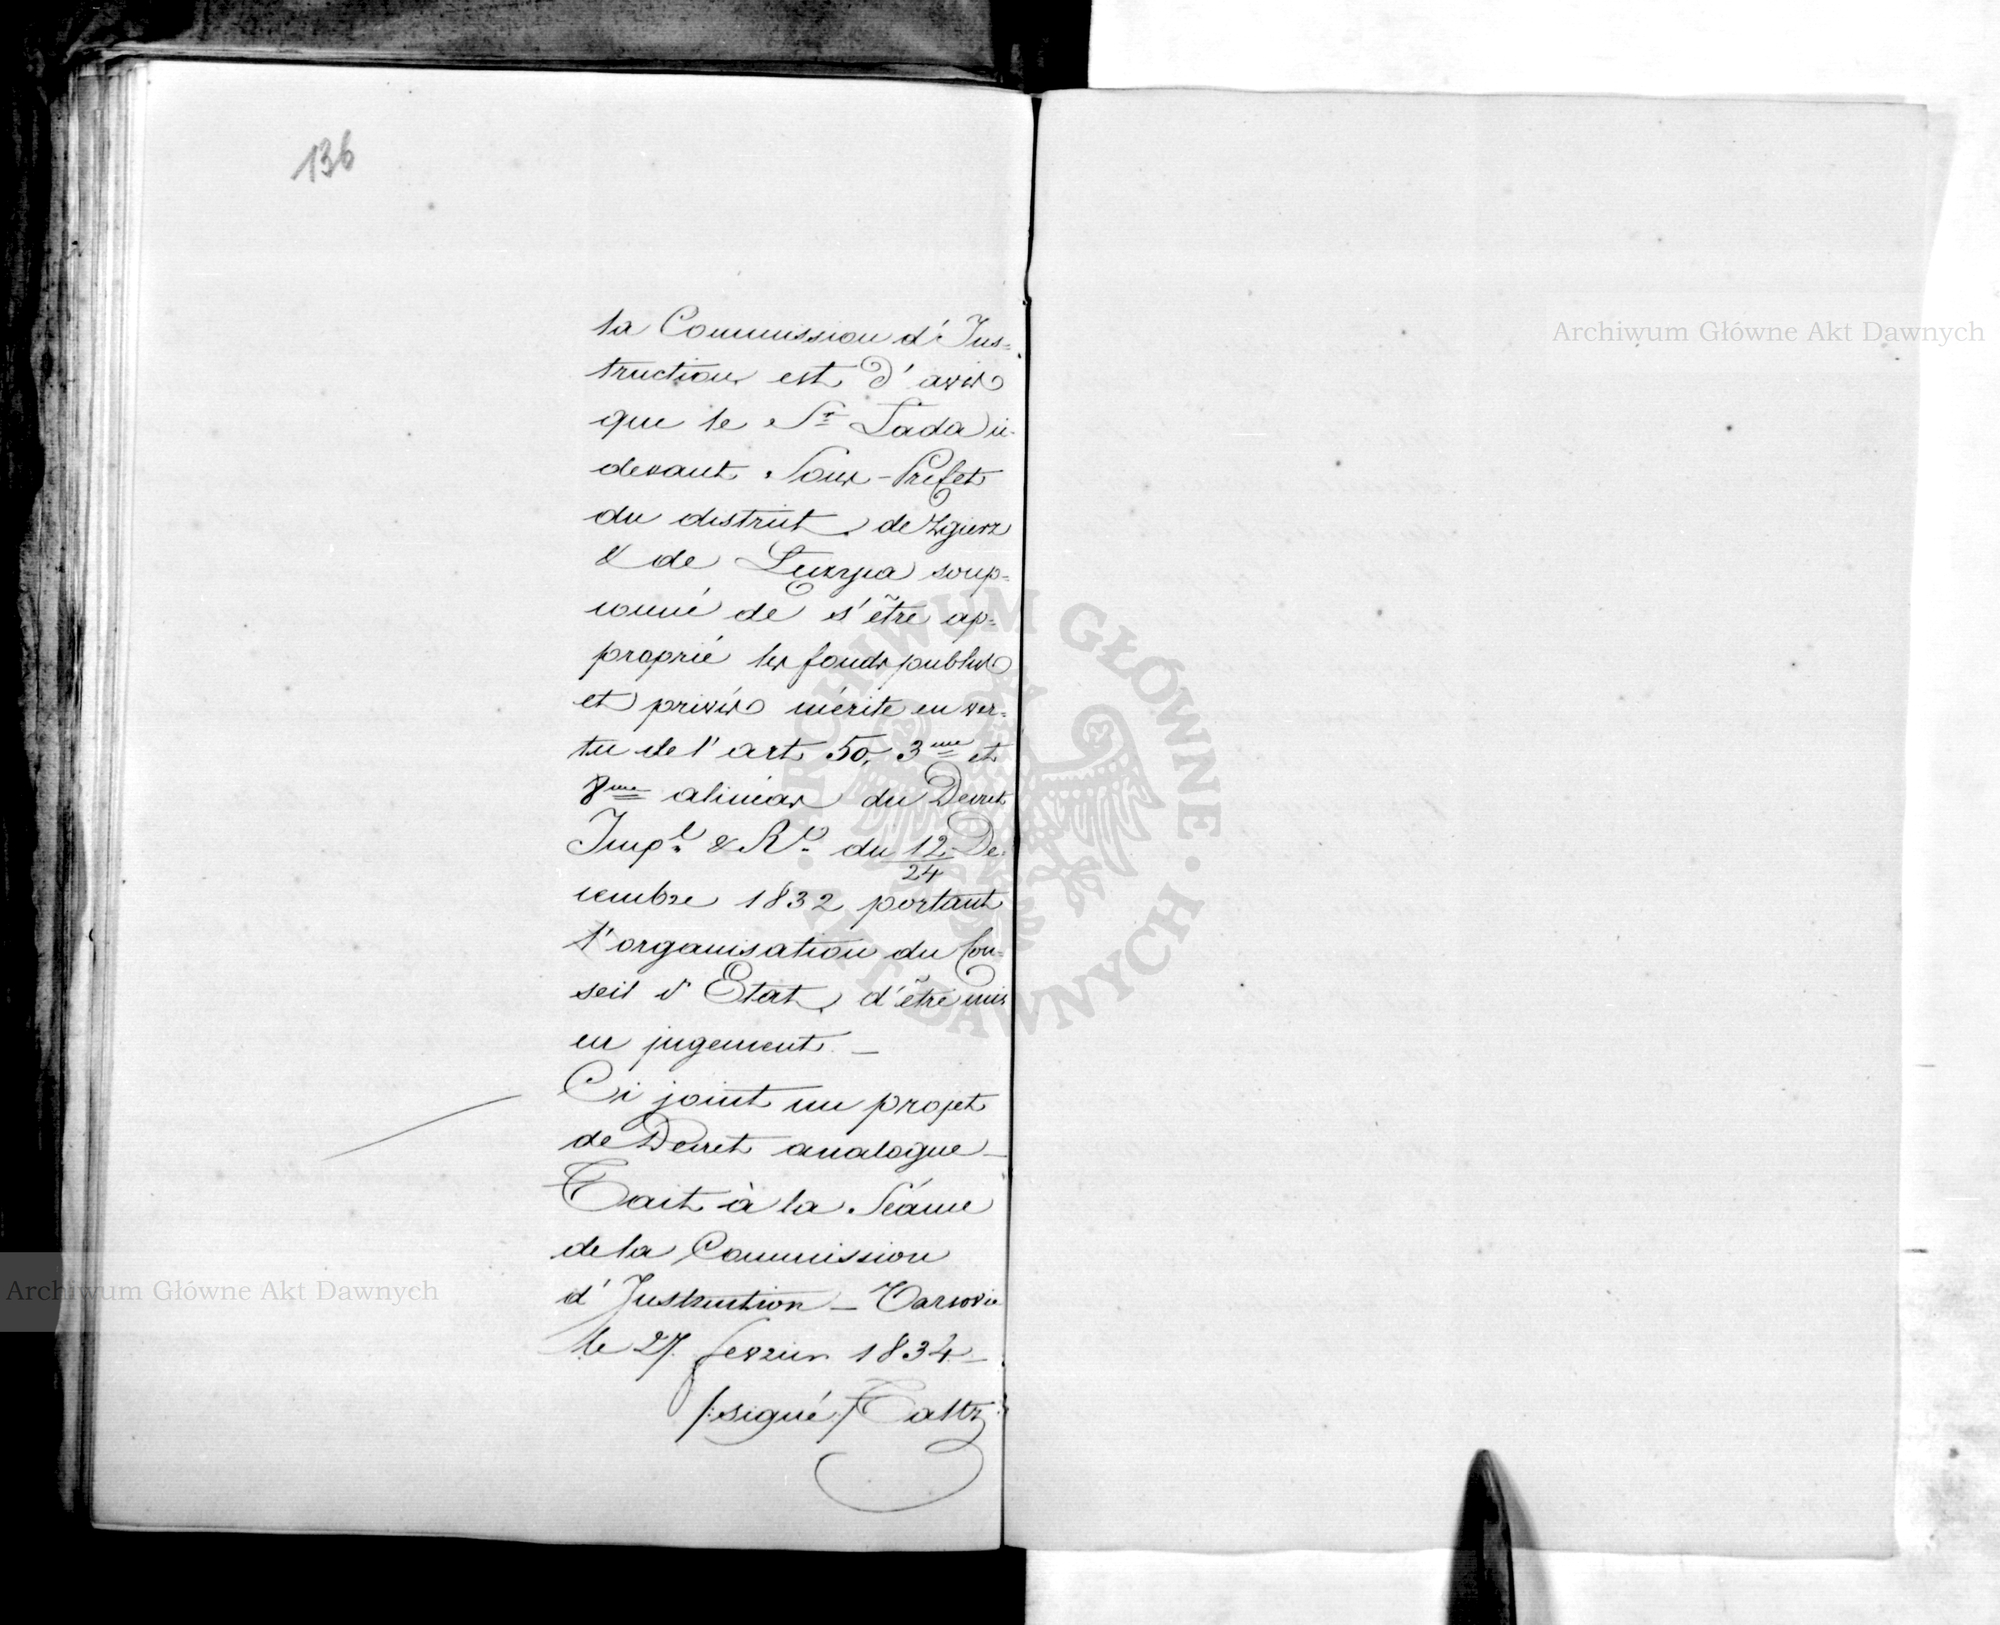 136
la Commission d'Ins=
truction est d'avis
que le Sr Lada ci-
devant Sous-Préfet
du district de Zgierz
& de Łęczyca soup=
çonné de s'être ap=
proprié les fonds publics
et privés mérite en ver=
tu de l'art 50, 3me et
8me alinéas du Decret
Impl & Rl du 12/24 De
cembre 1832 portant
l'organisation du Con=
seil d'Etat, d'être mis
en jugement. —
Ci joint un projet
de Decret analogue —
Fait à la Séance
de la Commission
d'Instruction — Varsovie
le 27 fevrier 1834 —
/:signé:/
Archiwum Główne Akt Dawnych
Archiwum Główne Akt Dawnych
ARCHIWUM GŁÓWNE AKT DAWNYCH